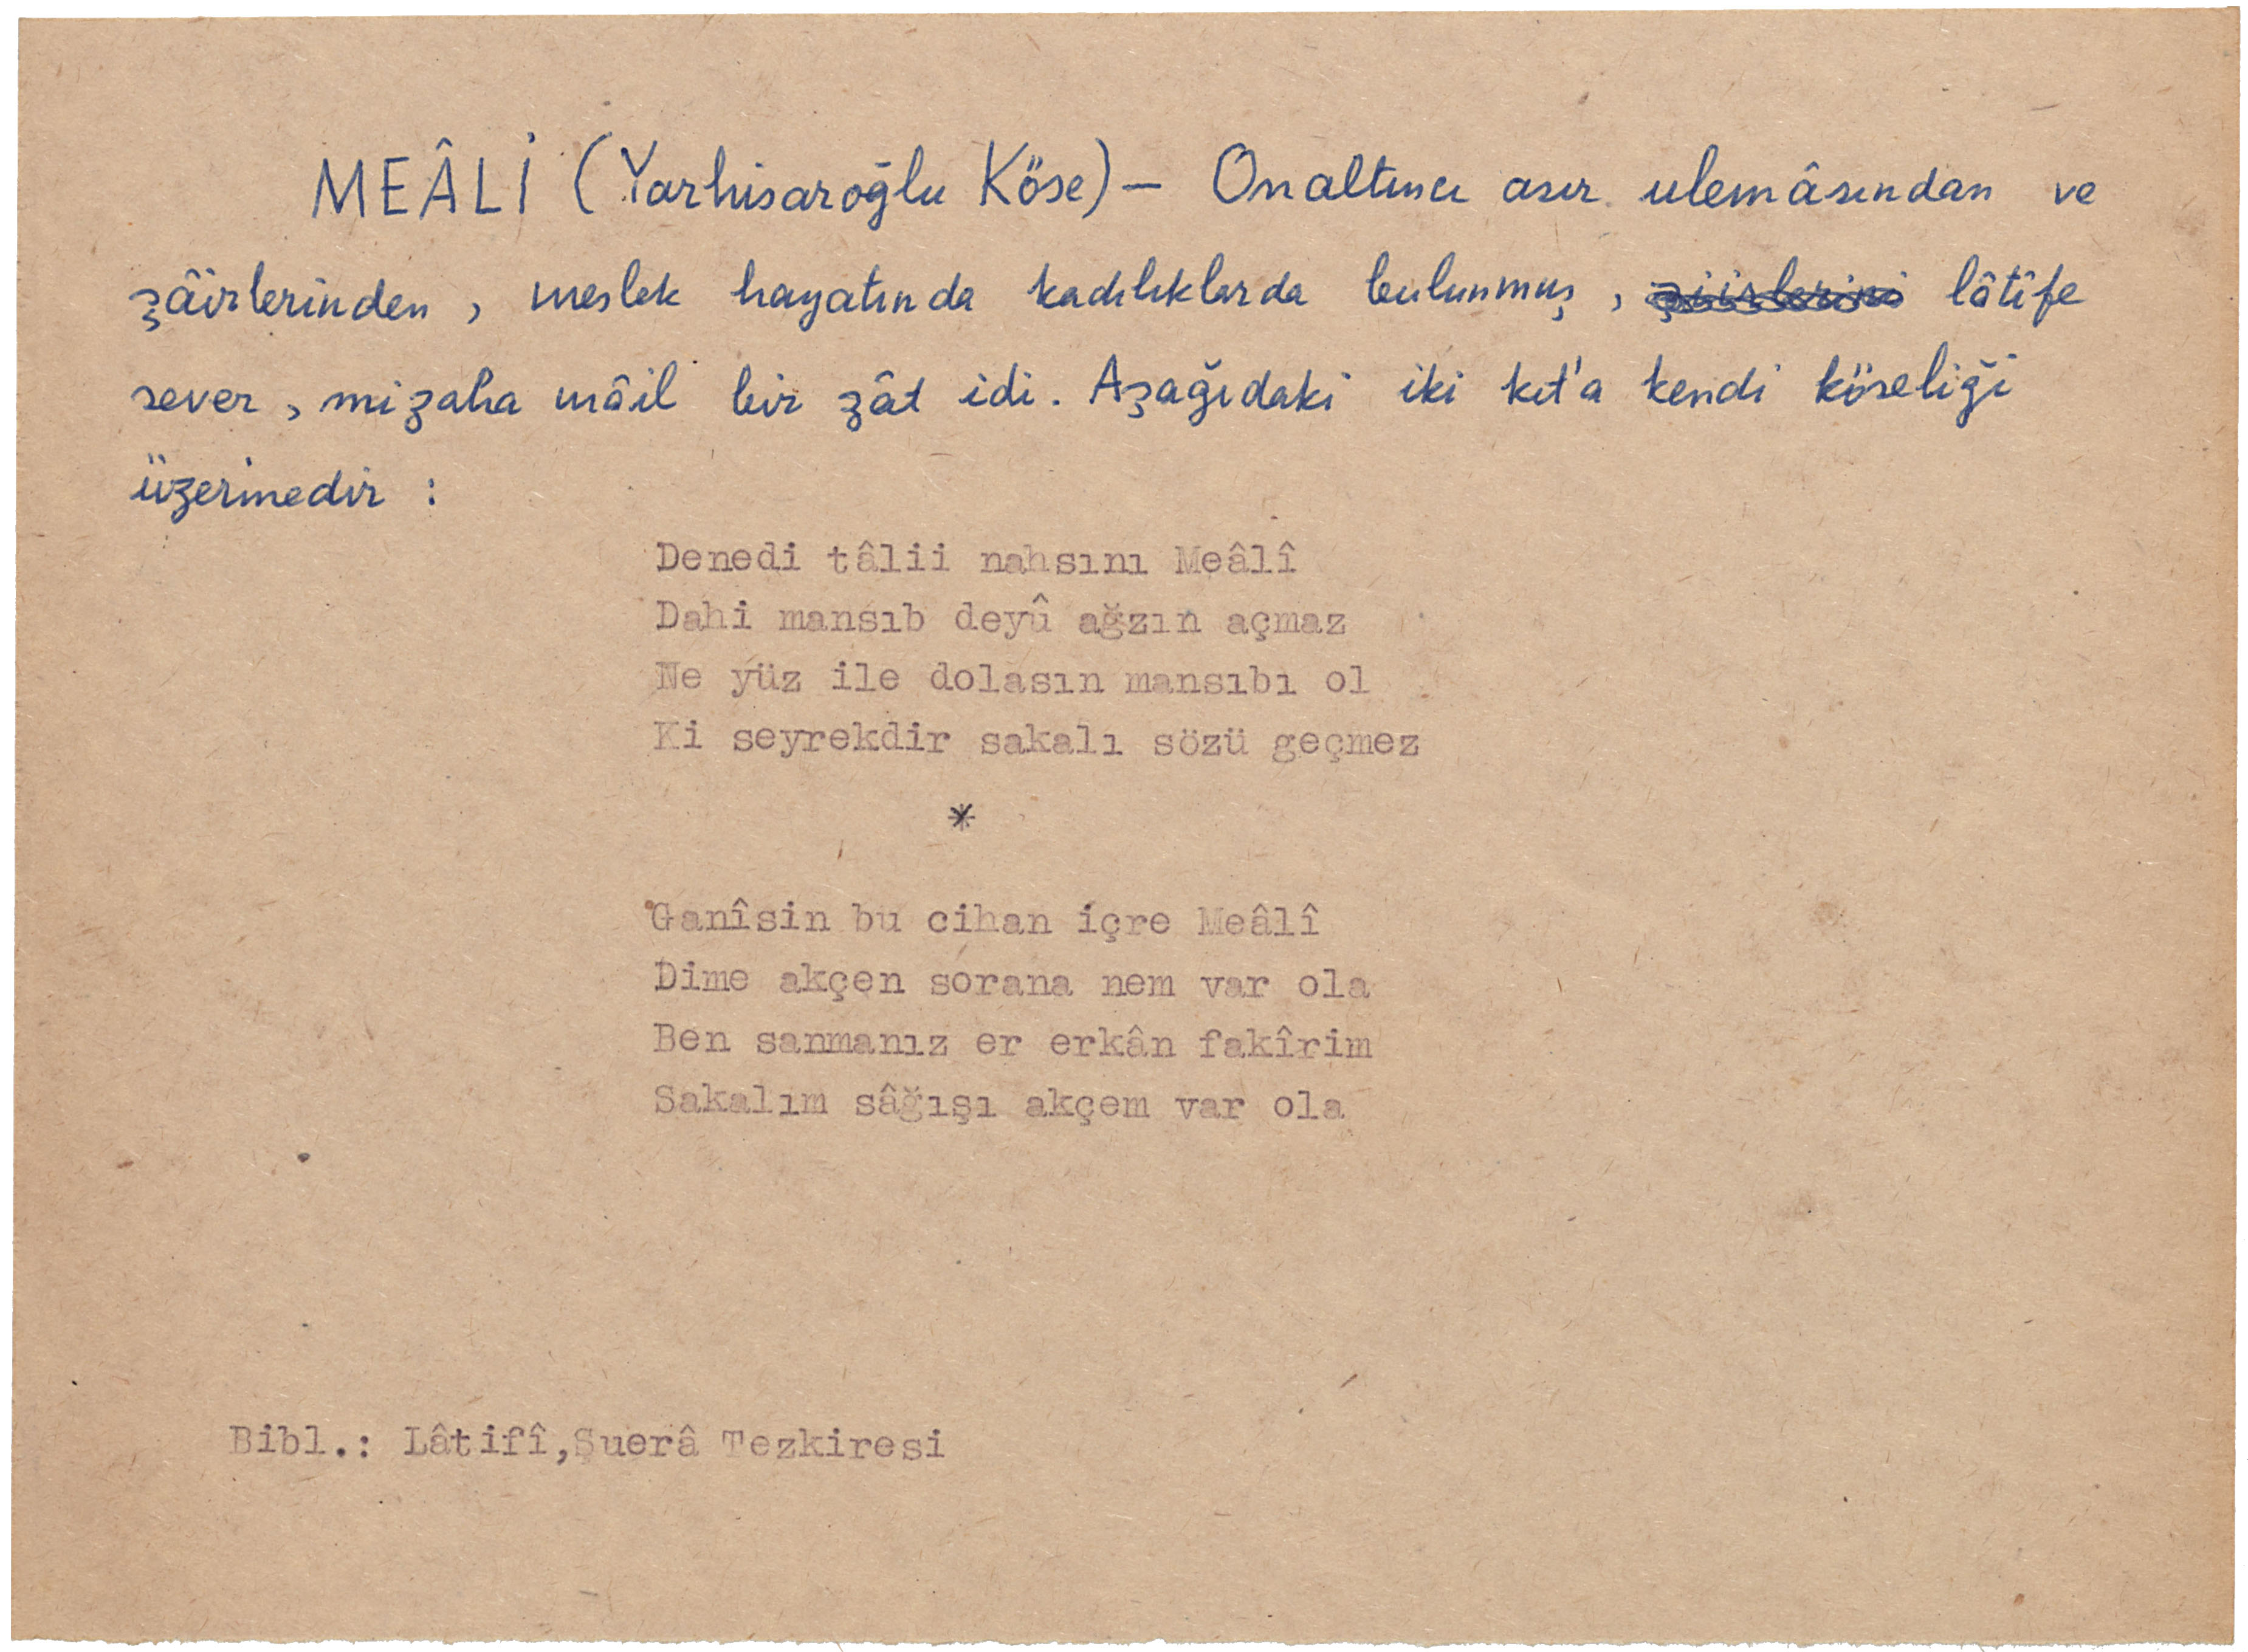 MEÂLİ (Yarhisaroğlu Köse) — Onaltıncı asır ulemâsından ve
şâirlerinden, meslek hayatında kadılıklarda bulunmuş, şiirlerini lâtîfe
sever, mizaha mâil bir zât idi. Aşağıdaki iki kıt'a kendi köseliği
üzerinedir :
Denedi tâlii nahsını Meâlî
Dahi mansıb deyû ağzın açmaz
Ne yüz ile dolasın mansıbı ol
Ki seyrekdir sakalı sözü geçmez
*
Ganîsin bu cihan içre Meâlî
Dime akçen sorana nem var ola
Ben sanmanız er erkân fakîrim
Sakalım sâğışı akçem var ola
Bibl.: Lâtifî,Şuerâ Tezkiresi